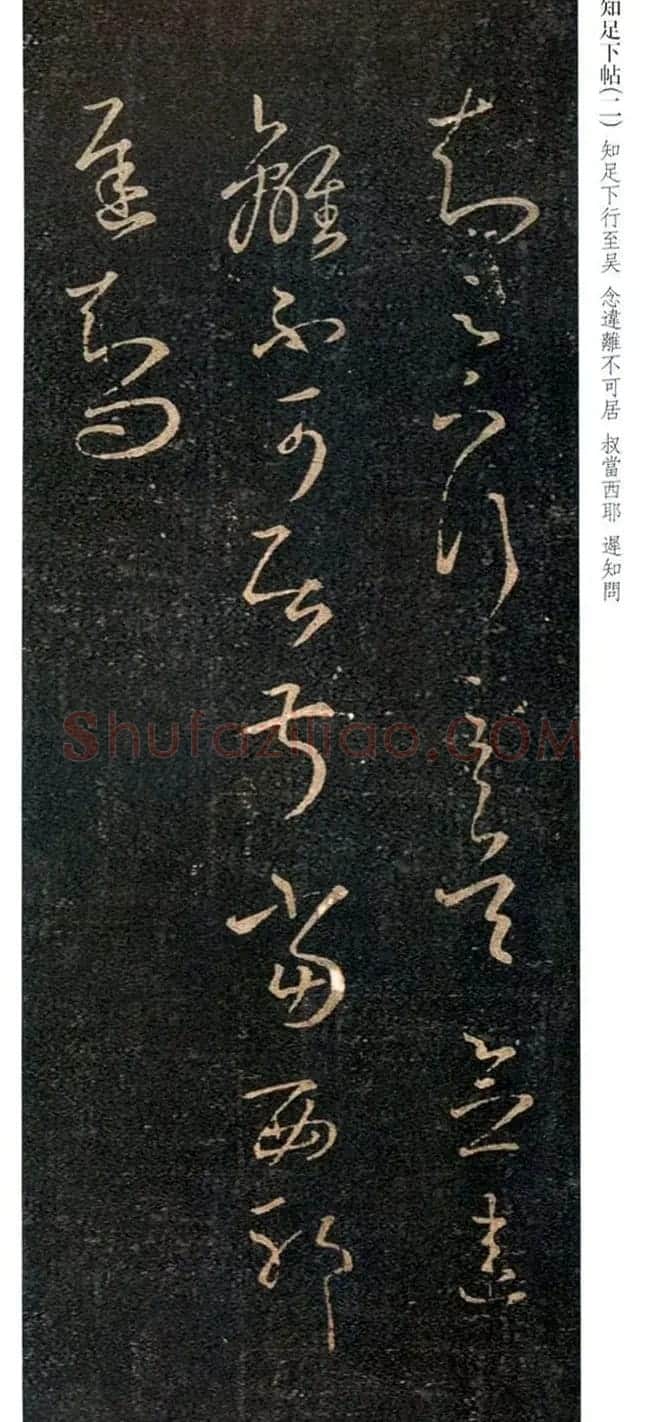 知足下帖(二) 知足下行至吴 念違離不可居 叔當西耶 遲知問
知足下行至吴念違
離不可居叔當西耶
遲知問
Shufaziliao.COM